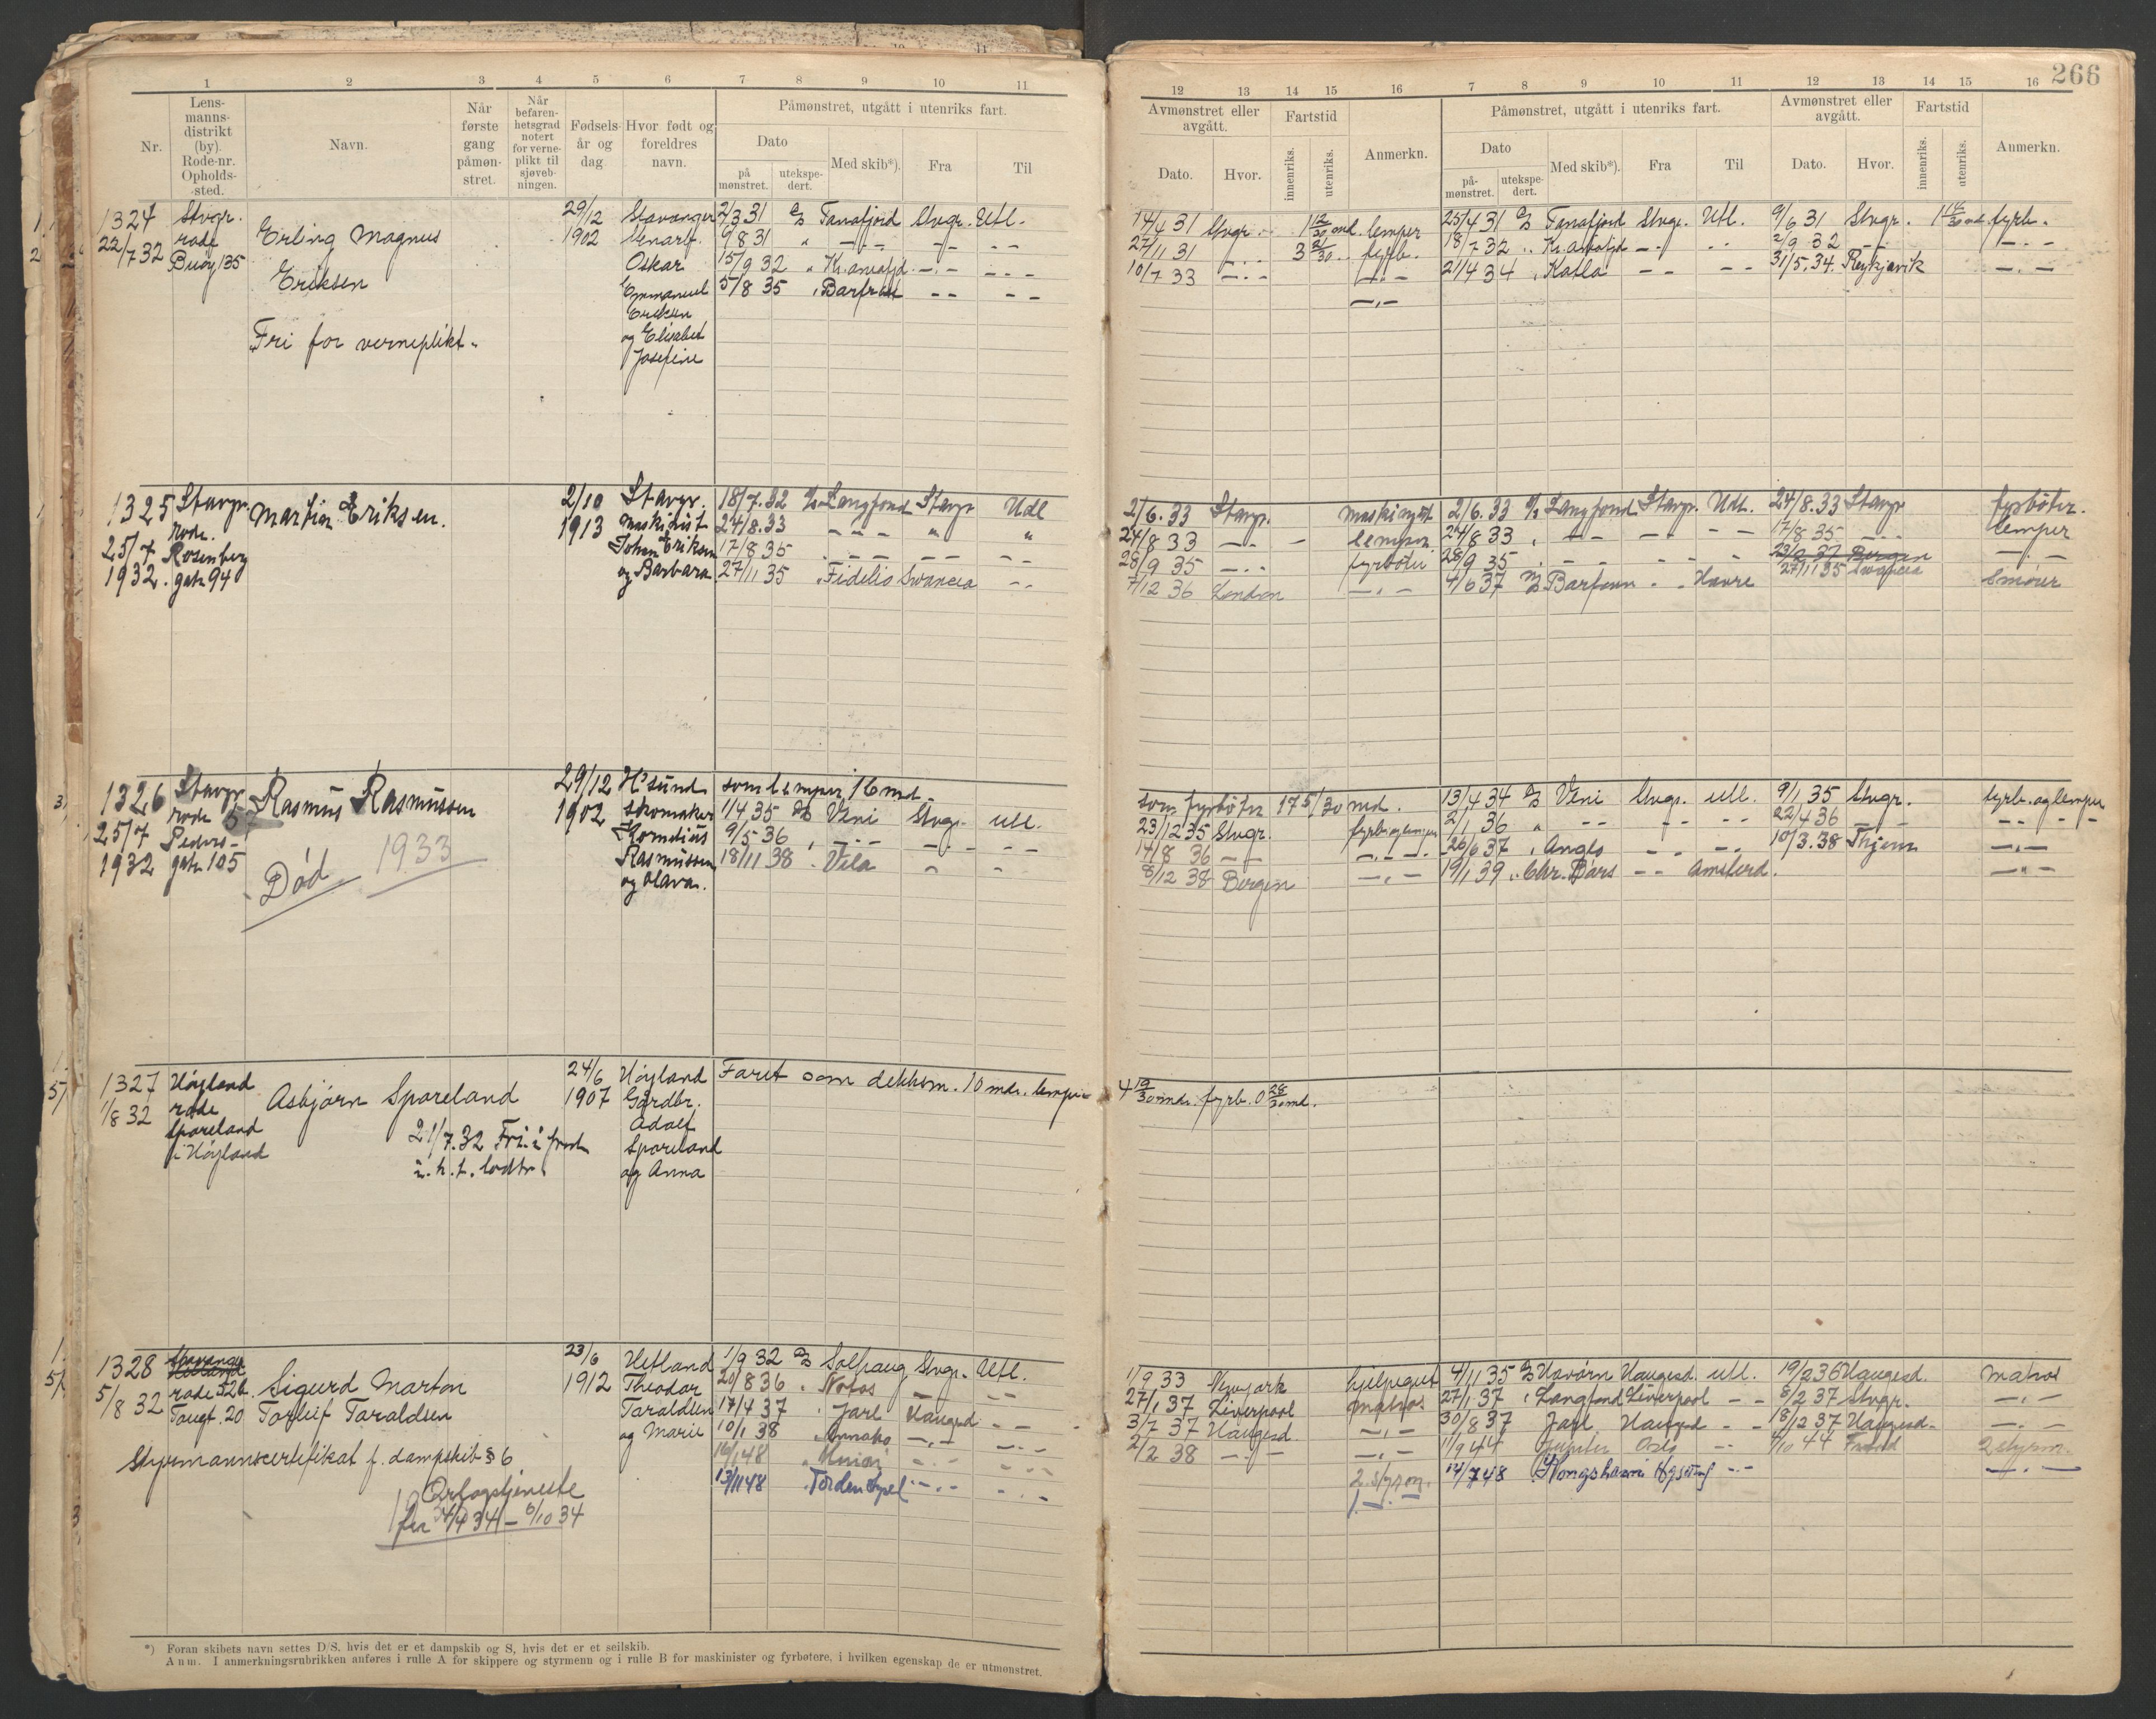 266
1 2 3 4 5 6 7 8 9 10 11
Nr.
Lens-
manns-
distrikt
(by).
Rode-nr.
Opholds-
sted.
Navn.
Når
første
gang
påmøn-
stret.
Når
befaren-
hetsgrad
notert
for verne-
plikt til
sjøveb-
ningen.
Fødsels-
år og
dag.
Hvor født og
foreldres
navn.
Påmønstret, utgått i utenriks fart.
Dato
på
mønstret.
utekspe-
dert.
Med skib*).
Fra
Til
12 13 14 15 16 7 8 9 10 11 12 13 14 15 16
Avmønstret eller
avgått.
Dato.
Hvor.
Fartstid
innenriks.
utenriks.
Anmerkn.
Påmønstret, utgått i utenriks fart.
Dato
på-
mønstret.
utekspe-
dert.
Med skib*).
Fra
Til
Avmønstret eller
avgått.
Dato.
Hvor.
Fartstid
innenriks.
utenriks.
Anmerkn.
1324
22/7 32
Stvgr.
rode
Buøy 135
Erling Magnus
Eriksen
Fri for verneplikt.
29/12
1902
Stavanger
Oskar
Emmanuel
Eriksen
og Elisabet
Josefine
2/3 31 Tanafjord Stvgr. Utl.
9/8 31 " — " — — —
15/9 32 " Kr.aniafjd. — " — — —
5/8 35 " — — — —
14/4 31 Stvgr. 1 12/30 md. lemper
27/11 31 — " — 3 21/30 " fyrb.
10/7 33 — " — — " —
— " —
25/4 31 Tanafjord Stvgr. Utl. 9/6 31 Stvgr. 1 14/30 md. fyrb.
18/7 32 " Kr.aniafjd — " — " " 2/9 32 — " — — " —
21/4 34 " Katla — — — — 31/5.34. Reykjavik — " —
1325
25/7
1932.
Stavgr.
Rode.
Rosenberg
gatn 94
Martin Eriksen.
2/10
1913
Stavgr.
Maskinist
Johan Eriksen
og Barbara
18/7.32 Langfond Stavgr Udl
24/8.33 — " — " "
17/8 35 — — — —
27/11 35 " Fidelio Swansea — "
2/6.33 Stavgr. maskingut
24/8 33 — " — lemper
28/9 35 — " — fyrbøter
7/12 36 London — " —
2/6.33 Langfond Stavgr. Udl. 24/8.33 Stavgr fyrbøter.
24/8 33 " — — — " — — — 17/8 35 — " — lemper
28/9 35 — — — — 23/9 37 Bergen — " —
27/11 35 Swansea
4/6 37 Havre Smører
1326
25/7
1932
Stavgr
rode 57
Peders-
gatn 105
Rasmus Rasmussen
Død 1933
29/12
1902
H'sund
skomaker
Korndius
Rasmussen
og Olava.
som lemper 16 md.
1/4 35 Veni Stvgr. utl.
9/5 36 " — " — — " — — —
18/11 38 " Vela " "
som fyrbøter 17 5/30 md.
23/12 35 Stvgr. fyrb. og lemper
14/8 36 — — — " — " —
8/12 38 Bergen — " —
13/4 34 Veni Stvgr. utl. 9/1 35 Stvgr. fyrb. og lemper
2/1 36 " — — — — — — 22/4 36 — " — — " — " —
26/6 37 " Anglo — — — — 10/3.38 — " —
19/1 39 " Chr. Bors — — Amsterd. — " —
1327
1/8 32
Høyland
rode
Spareland
i Høyland
Asbjørn Spareland
21/7.32 Fri i fred
24/6
1907
Høyland
Gårdbr.
Adolf
Spareland
og Anna
Faret som dekksm. 10 mdr. lemper
4 19/30 mdr. fyrb. 0 28/30 md.
1328
5/8 32
Stavanger
Hetland
rode 52b.
Tougt. 20
Sigurd Marton
Torleif Taraldsen
Styrmannscertifikat f. dampskib § 6
Orlogstjeneste
fra 24/4 34 — 6/10 34
23/6
1912
Hetland
Theodor
Taraldsen
og Marie
1/9 32 Solhaug Stvgr. Utl.
20/8 36 " Notos — — —
17/4 37 " Jarl Haugesd — —
10/1 38 " — " — — " —
16/1 48 " Union — " — — " —
13/11 48 " Tordenskjel — " — — " —
1/9 33 Newyork hjelpegut
27/1 37 Liverpool matros
3/7 37 Haugesd. — " —
2/2 38 — — — " —
2. styrm.
1. — " —
4/11 35 Havørn Haugesd. utl. 19/2 36 Haugesd. Matros
27/1 37 " Langfond Liverpool — — 8/2 37 Stvgr. — " —
30/8 37 Jarl Haugesd — — 18/12 37 Haugesd. — " —
11/9 44 Jupiter Oslo — " 4/10 44 2 styrm.
14/7 48 Kongshavn — " — — " —
*) Foran skibets navn settes D/S, hvis det er et dampskib og S, hvis det er et seilskib.
Anm. I anmerkningsrubrikken anføres i rulle A for skippere og styrmenn og i rulle B for maskinister og fyrbøtere, i hvilken egenskap de er utmønstret.